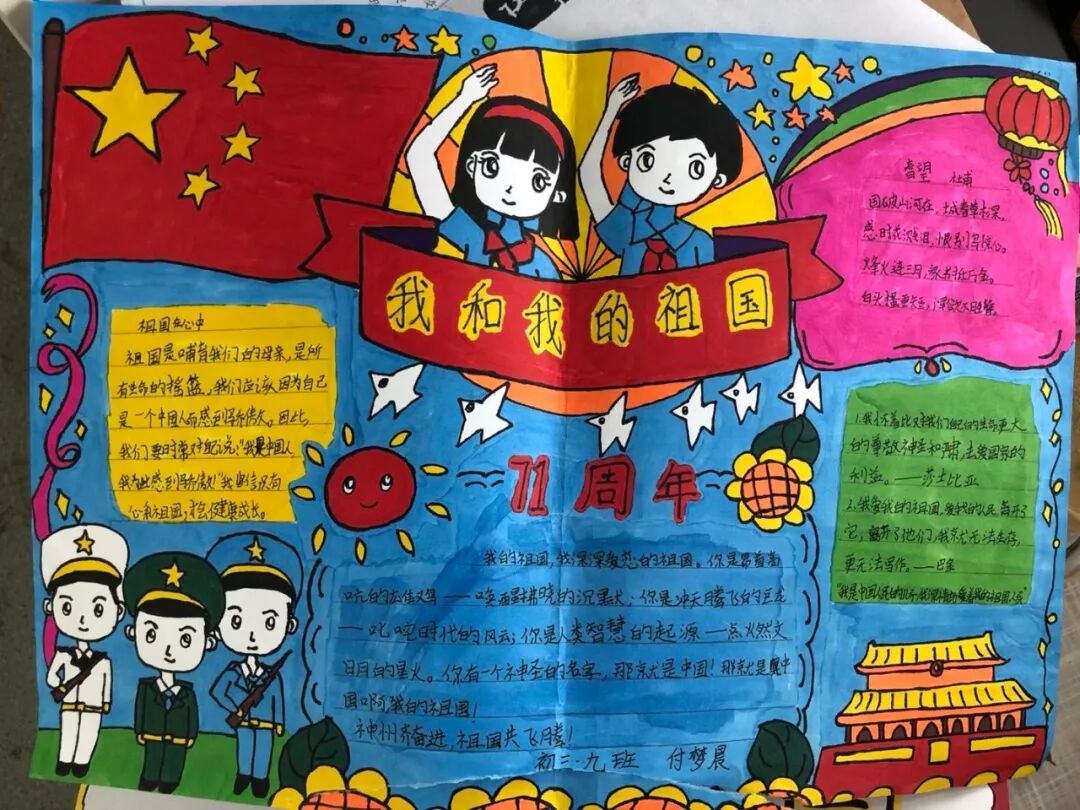 我和我的祖国
71周年
春望 杜甫
国破山河在，城春草木深。
感时花溅泪，恨别鸟惊心。
烽火连三月，家书抵万金。
白头搔更短，浑欲不胜簪。
祖国在心中
祖国是哺育我们的母亲，是所
有生命的摇篮，我们应该因为自己
是一个中国人而感到骄傲。因此，
我们要时常对自己说："我是中国人
我为此感到骄傲"我相信，只有
心和祖国，
1.我怀着比对我们自己的生命更大
的尊敬神圣和肃，去爱国家的
利益。——莎士比亚
2.我爱我的祖国，爱我的人民，离开了
它，离开了他们，我就无法生存，
更无法写作。——巴金
"我是中国人民的儿子，我深情地爱着我的祖国人民"
我的祖国，我深深爱恋的祖国。你是昂首高
吭的雄鸡——唤醒拂晓的沉默；你是冲天腾飞的巨龙
——叱咤时代的风云；你是人类智慧的起源——点燃文
明的星火。你有一个神圣的名字，那就是中国！那就是中
国啊，我的祖国！
神州齐奋进，祖国共飞腾！
初三·九班 付梦晨